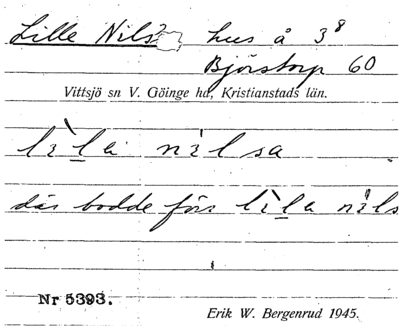 Lille Nils hus å 3⁸
Björstorp 60
Vittsjö sn V. Göinge hd, Kristianstads län.
lìla nìlsa
där bodde förr lìla nìls
Nr 5393.
Erik W. Bergenrud 1945.